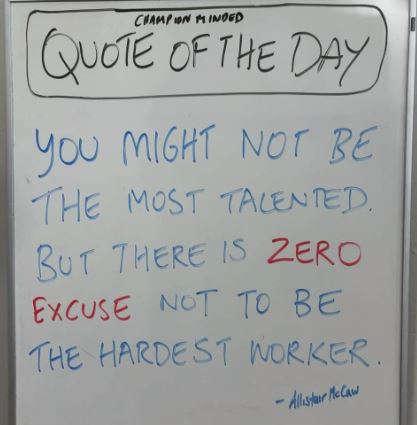 CHAMPION MINDED
QUOTE OF THE DAY
YOU MIGHT NOT BE
THE MOST TALENTED.
BUT THERE IS ZERO
EXCUSE NOT TO BE
THE HARDEST WORKER.
- Allistair McCaw